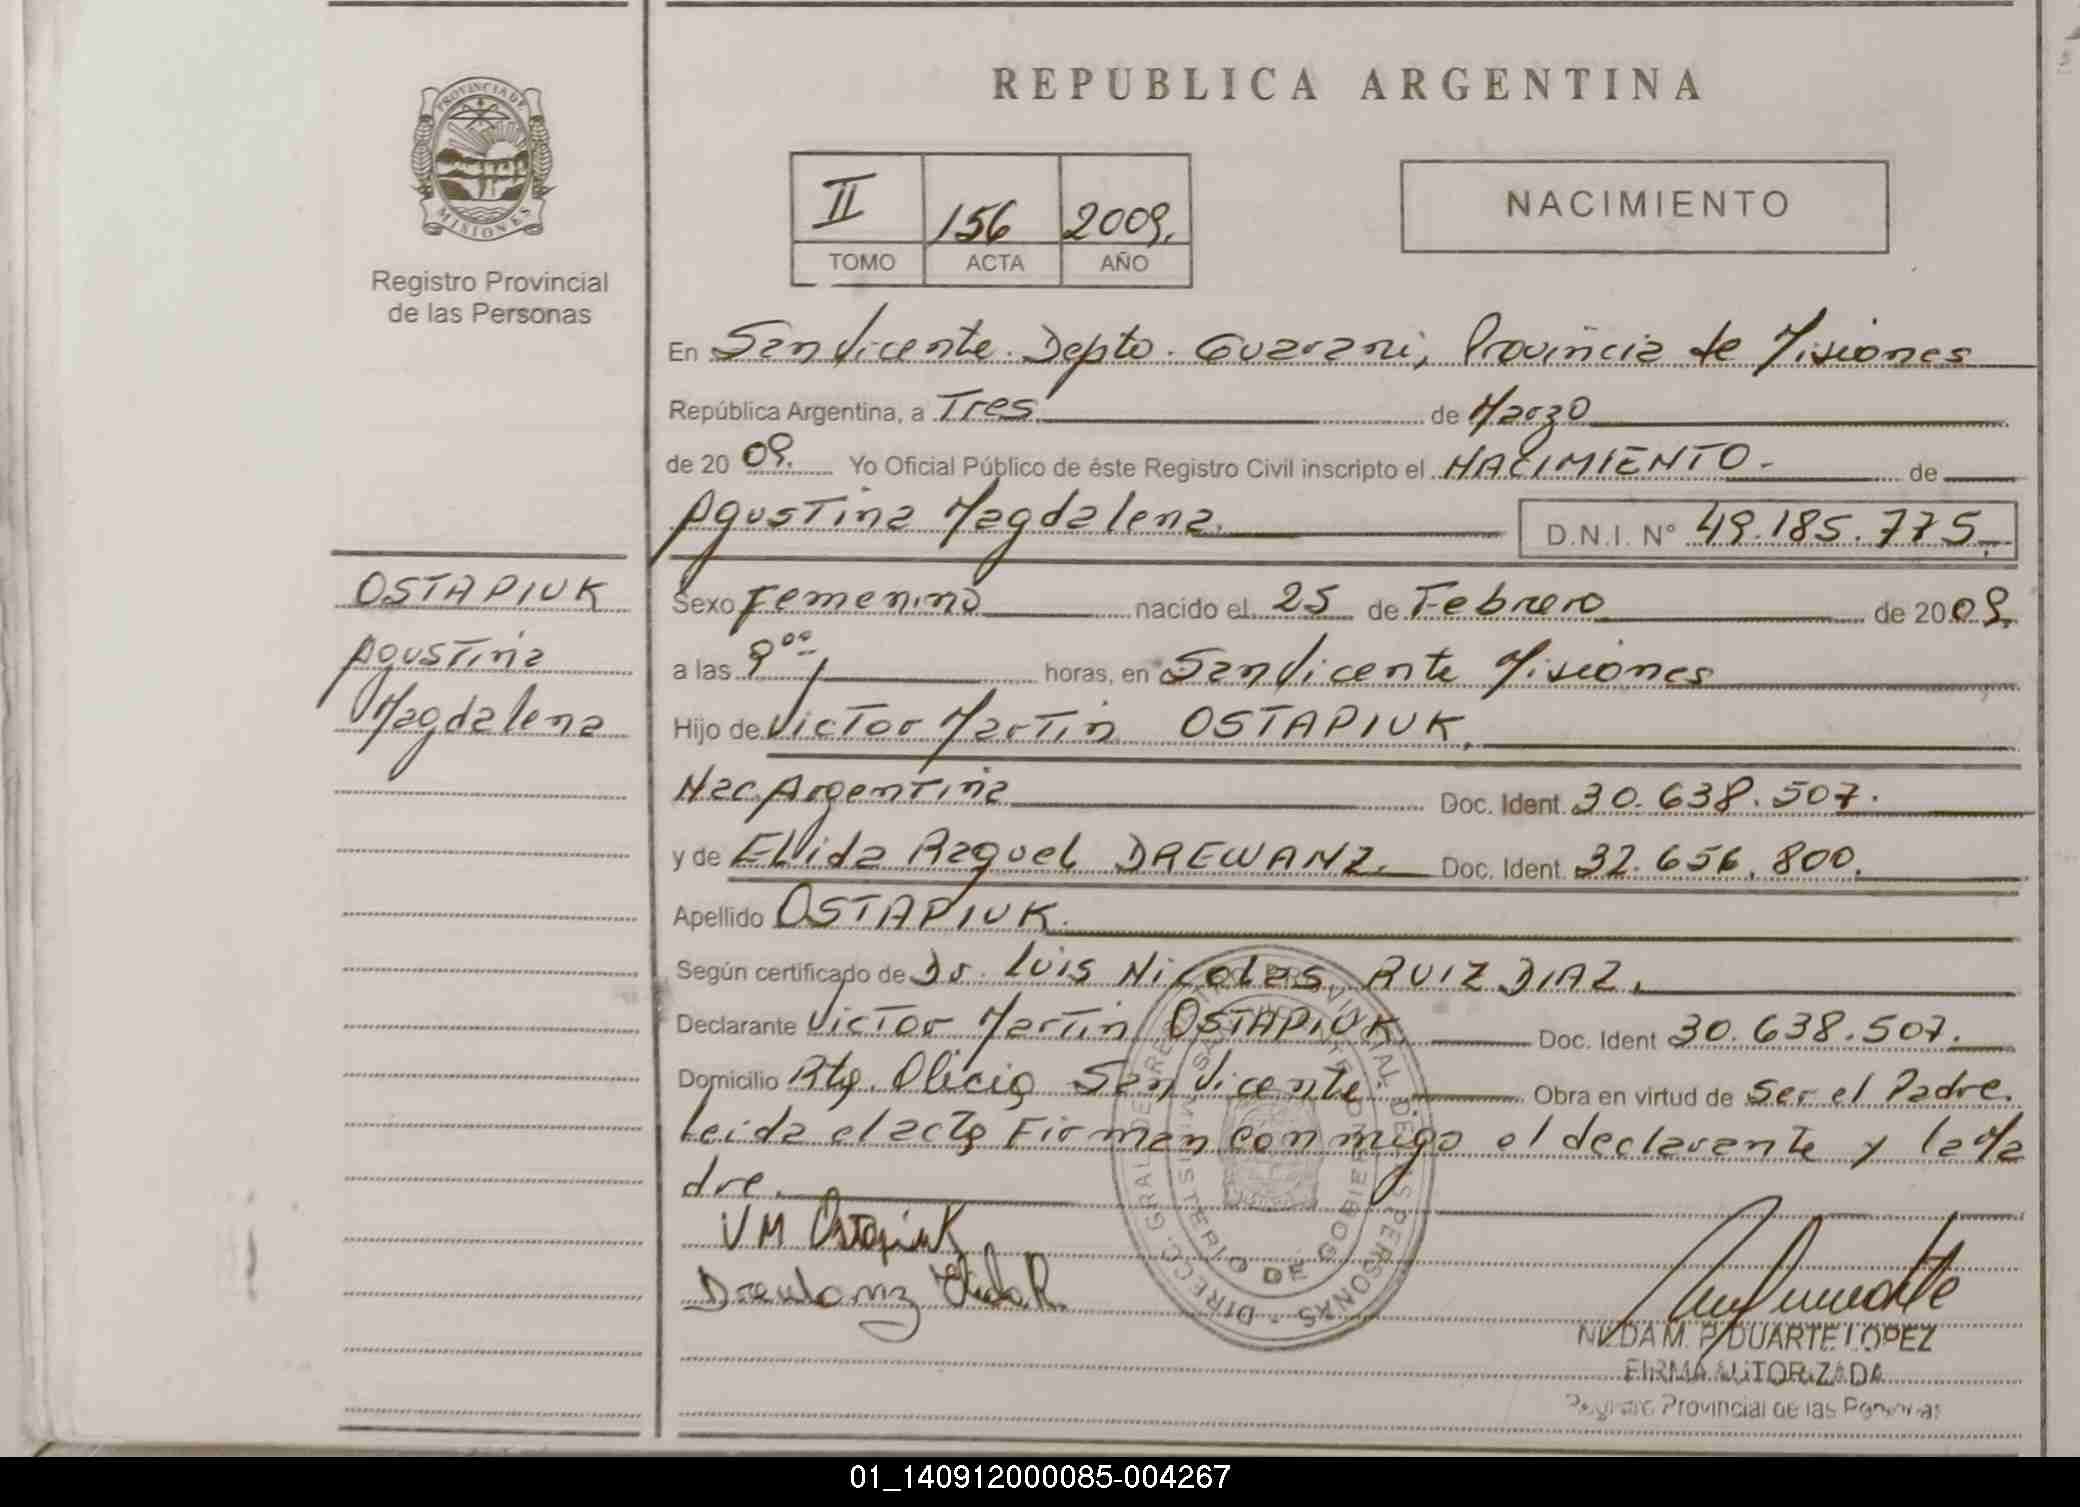 PROVINCIA DE
MISIONES
Registro Provincial
de las Personas
OSTAPIUK
Agustina
Magdalena
REPUBLICA ARGENTINA
II 156 2009.
TOMO ACTA AÑO
NACIMIENTO
En San Vicente. Depto. Guarani, Provincia de Misiones
República Argentina, a Tres de Marzo
de 20 09. Yo Oficial Público de éste Registro Civil inscripto el NACIMIENTO. de
Agustina Magdalena. D.N.I. Nº 49.185.775.
Sexo Femenino nacido el 25 de Febrero de 20 09.
a las 9 00 horas, en San Vicente Misiones
Hijo de Victor Martin OSTAPIUK.
Nac. Argentina Doc. Ident. 30.638.507.
y de Elvida Raquel DREWANZ. Doc. Ident. 32.656.800.
Apellido OSTAPIUK.
Según certificado de Dr. Luis Nicolas RUIZ DIAZ.
Declarante Victor Martin OSTAPIUK. Doc. Ident 30.638.507.
Domicilio Rtg. Olicio San Vicente. Obra en virtud de ser el Padre.
Leida el acta Firman con migo el declarante y la Ma
dre.
VM Ostapiuk
DIRECC. GRAL. DE REGISTRO PROVINCIAL DE LAS PERSONAS
MINISTERIO DE GOBIERNO
NILDA M. P. DUARTE LOPEZ
FIRMA AUTORIZADA
Registro Provincial de las Personas
01_140912000085-004267